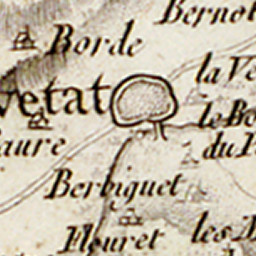 Bernot
Borde
la Ve
vetat
le Bo
aure
du P
Berbiguet
Fleuret
les M